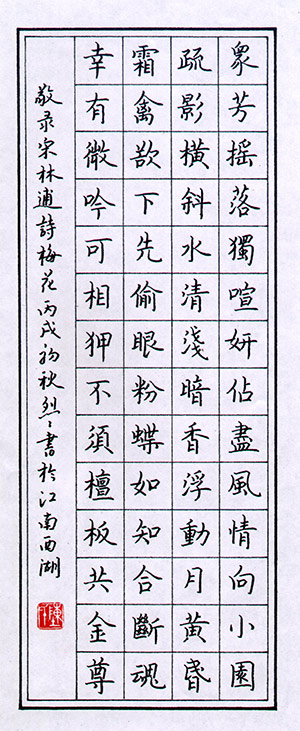 衆芳摇落獨喧妍佔盡風情向小園
疏影橫斜水清淺暗香浮動月黃昏
霜禽欲下先偷眼粉蝶如知合斷魂
幸有微吟可相狎不須檀板共金尊
敬录宋林逋詩梅花丙戌初秋烈〻書於江南西湖